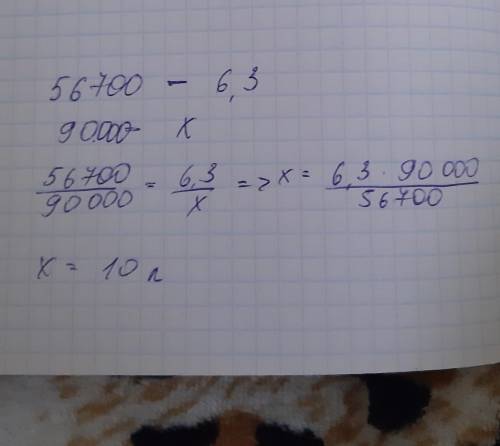 56700 – 6,3
90.000 – x
56700/90000 = 6,3/x => x = 6,3 · 90 000/56700
x = 10 л